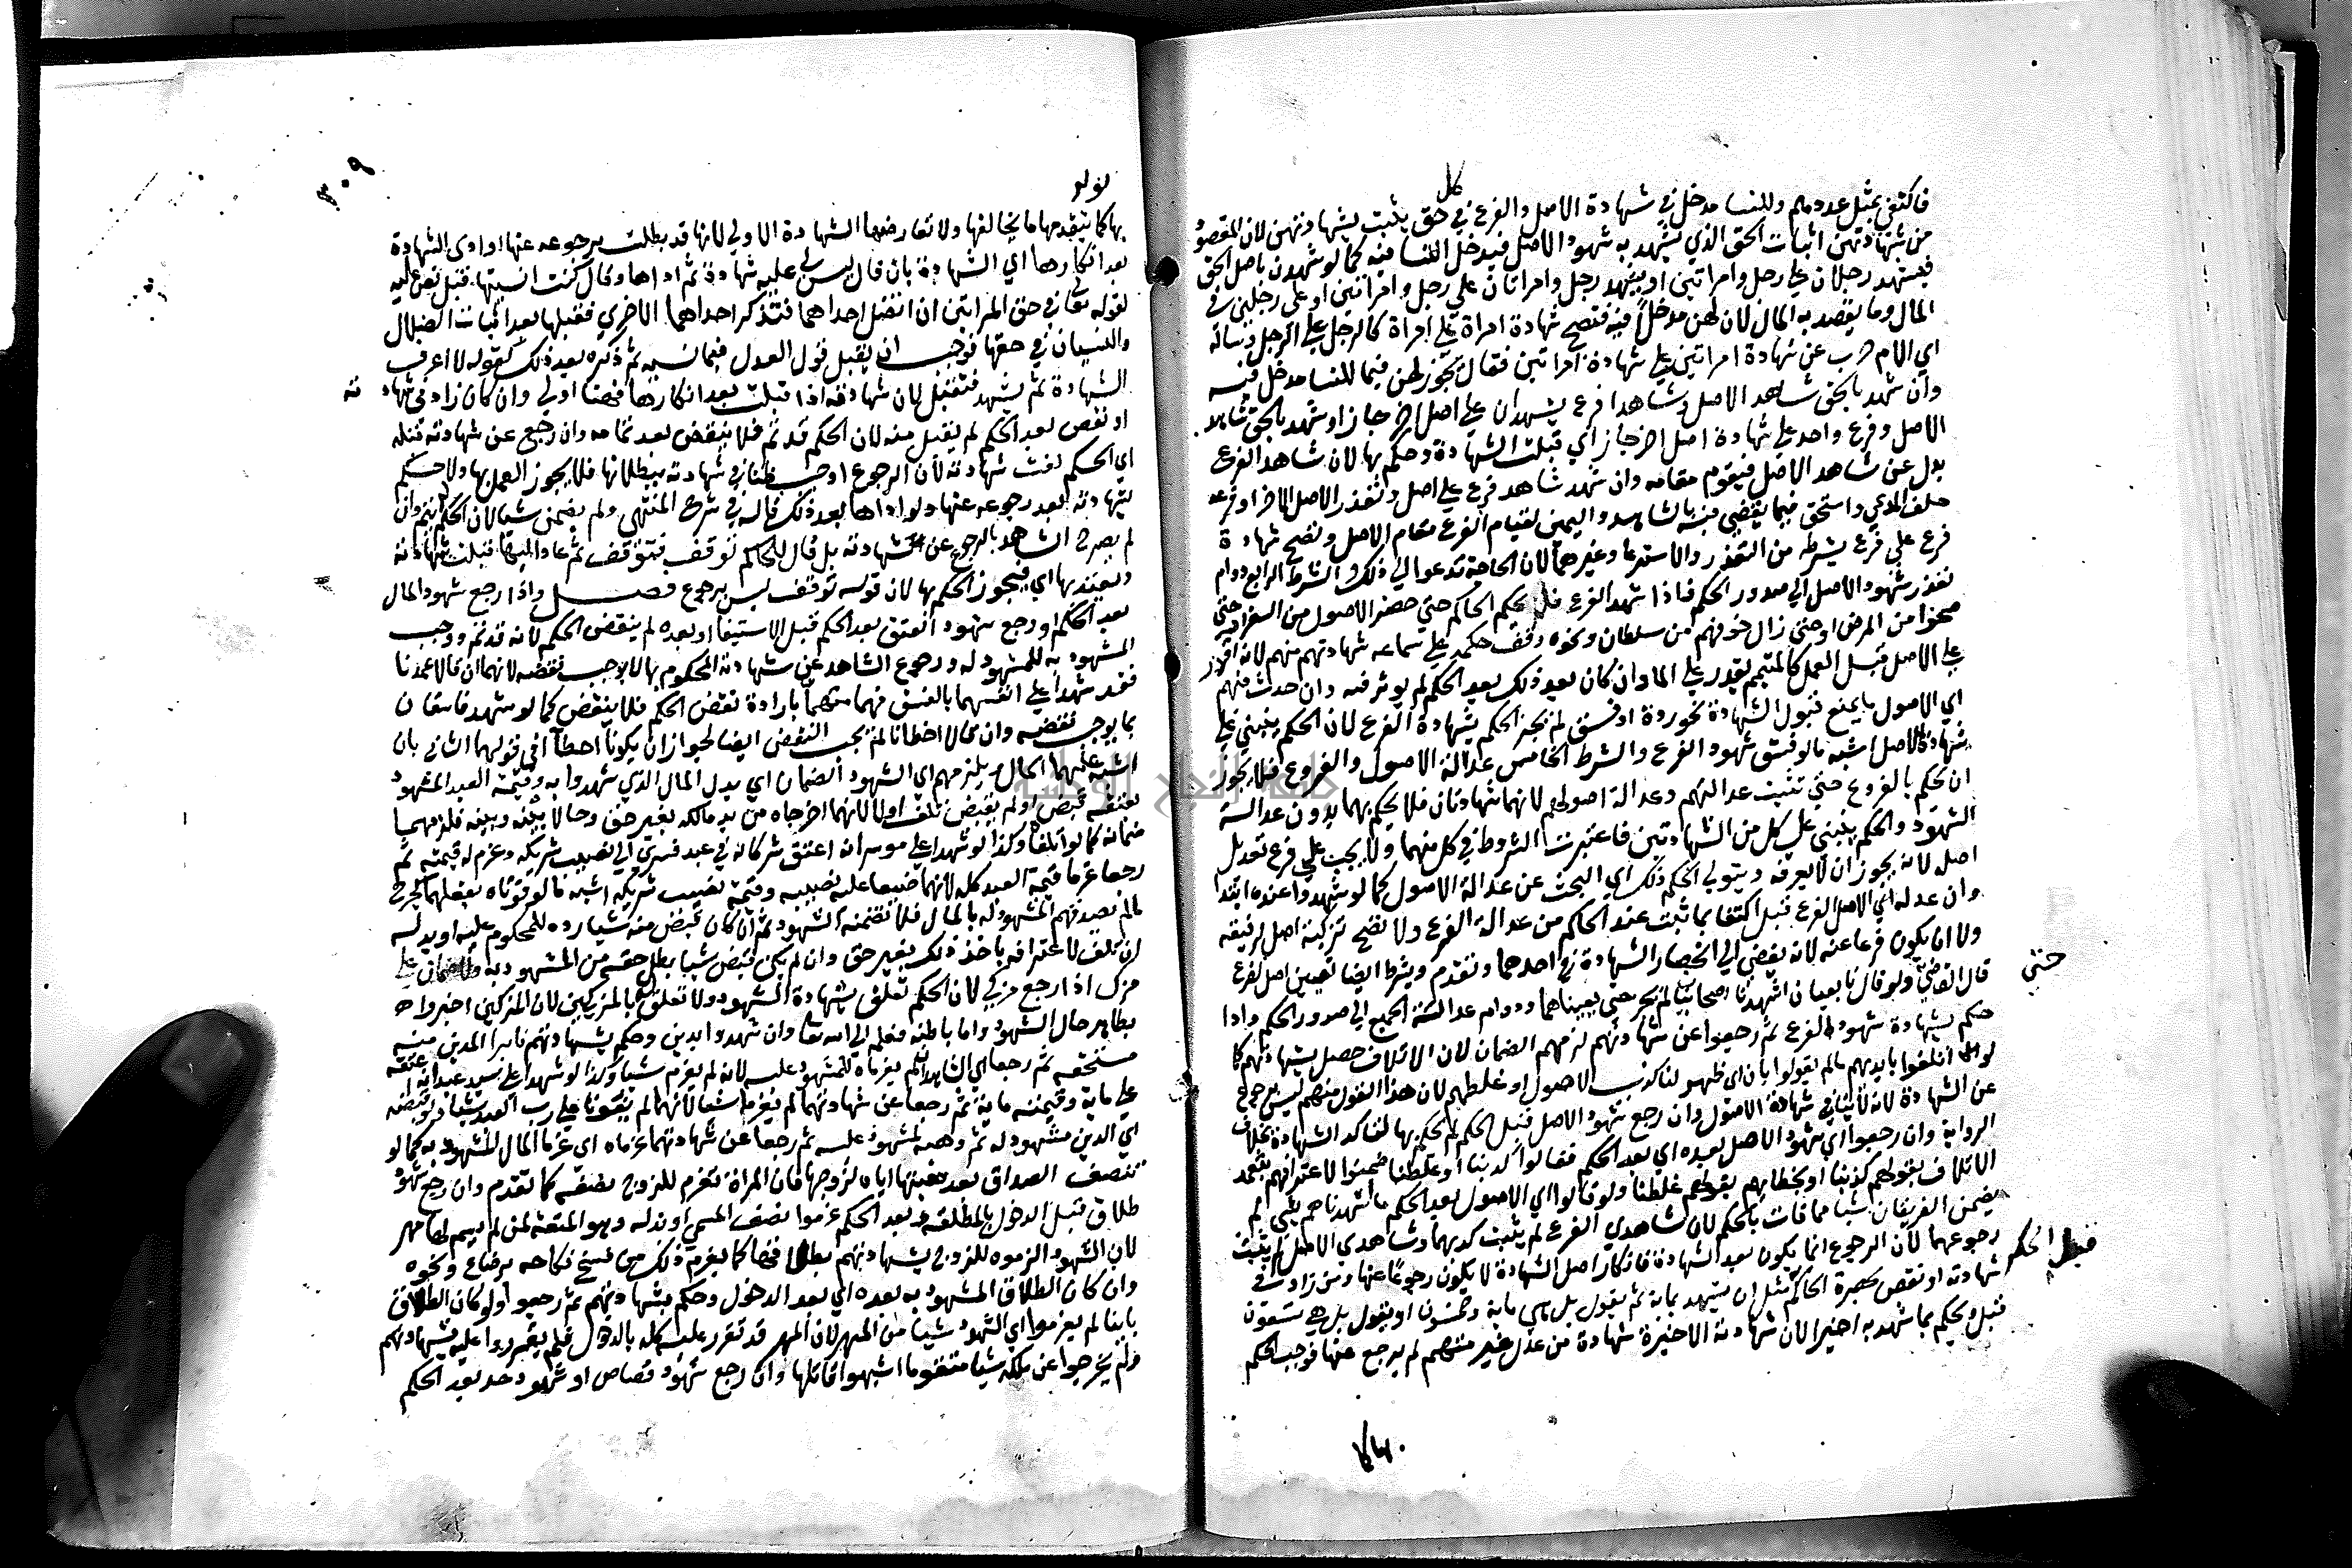 كل
فاكتفى بمثل عددهم وللنسا مدخل في شهادة الاصل والفرع في حق يثبت بشهادتهن لان المقصود
من شهادتهن اثبات الحق الذي يشهد به شهود الاصل فيدخل النسا فيه كما لو شهدن باصل الحق
فيشهد رجلان على رجل وامراتين او يشهد رجل وامراتان علي رجل وامراتين او على رجلين في
المال وما يقصد به المال لان لهن مدخلا فيه فتصح شهادة امراة على امراة كالرجل على الرجل وساله
اي الامام حرب عن شهادة امراتين على شهادة امراتين فقال يجوز لهن فيما للنسا مدخل فيه
وان شهد بالحق شاهد الاصل وشاهدا فرع يشهدان على اصل اخر جاز او شهد بالحق شاهد
الاصل وفرع واحد على شهادة اصل اخر جاز اي قبلت الشهادة وحكم بها لان شاهد الفرع
بدل عن شاهد الاصل فيقوم مقامه وان شهد شاهد فرع على اصل وتعذر الاصل الاخر او فرعه
حلف المدعي واستحق فيما يقضي فيه بالشاهد واليمين لقيام الفرع مقام الاصل وتصح شهادة
فرع علي فرع بشرطه من التعذر والاسترعا وغيرهما لان الحاجة تدعو الي ذلك والشرط الرابع دوام
تعذر شهود الاصل الي صدور الحكم فاذا شهد الفرع فلم يحكم الحاكم حتي حضر الاصول من السفر او حتي
صحوا من المرض او حتى زال خوفهم من سلطان ونحوه وقف حكمه علي سماعه شهادتهم منهم لانه قدر
على الاصل قبل العمل كالمتيمم يقدر على الما وان كان بعد ذلك بعد الحكم لم يوثر فيه وان حدث منهم
اي الاصول ما يمنع قبول الشهادة نحو ردة او فسق لم يجز الحكم بشهادة الفرع لان الحكم ينبني علي
شهادة الاصل اشبه ما لو فسق شهود الفرع والشرط الخامس عدالة الاصول والفروع فلا يجوز
ان يحكم بالفروع حتي تثبت عدالتهم وعدالة اصولهم لانهما شهادتان فلا يحكم بهما بدون عدالة
الشهود والحكم ينبني على كل من الشهادتين فاعتبرت الشروط في كل منهما ولا يجب علي فرع تعديل
اصل لانه يجوز ان لا يعرفه ويتولي الحاكم ذلك اي البحث عن عدالة الاصول كما لو شهدوا عنده ابتدا
وان عدله اي الاصل الفرع قبل اكتفا بما ثبت عند الحاكم من عدالة الفرع ولا تصح تزكية اصل لرفيقه
ولا ان يكون فرعا عنه لانه يفضي الي انحصار الشهادة في احدهما وتقدم ويشترط ايضا تعيين اصل لفرع
قال القاضي ولو قال تابعيان اشهدنا صحابيان لم يجز حتي يعيناهما ودوام عدالة الجميع الي صدور الحكم واذا
حتي
حكم بشهادة شهود الفرع ثم رجعوا عن شهادتهم لزمهم الضمان لان الاتلاف حصل بشهادتهم كما
لو اتلفوا بايديهم مالم يقولوا بان اي ظهر لنا كذب الاصول او غلطهم لان هذا القول منهم ليس برجوع
عن الشهادة لانه لا ينافي شهادة الاصول وان رجع شهود الاصل قبل الحكم لم يحكم بها لتاكد الشهادة بخلاف
الرواية وان رجعوا اي شهود الاصل بعده اي بعد الحكم فقالوا كذبنا او غلطنا ضمنوا لاعترافهم بتعمد
الاتلاف بقولهم كذبنا او بخطايهم بقولهم غلطنا ولو قالوا اي الاصول بعد الحكم ما اشهدناهم بشي لم
يضمن الفريقان شيا مما فات بالحكم لان شاهدي الفرع لم يثبت كذبهما وشاهدي الاصل لم يثبت
رجوعهما لان الرجوع انما يكون بعد الشهادة فانكار اصل الشهادة لا يكون رجوعا عنها ومن زاد في
قبل الحكم
شهادته او نقص بحضرة الحاكم مثل ان يشهد بماية ثم يقول بل هي ماية وخمسون او يقول بل هي تسعون
قبل وحكم بما شهد به اخيرا لان شهادته الاخيرة شهادة من عدل غير متهم لم يرجع عنها فوجب الحكم
بها كما
٣٠٩
لو لم
بها كما يتقدمها ما يخالفها ولا تعارضها الشهادة الاولي لانها قد بطلت برجوعه عنها او ادى الشهادة
بعد انكارها اي الشهادة بان قال ليس لي عليه شهادة ثم اداها وقال كنت انسيتها قبل نص عليه
لقوله تعالي في حق المراتين ان تضل احداهما فتذكر احداهما الاخرى فقبلها بعد اثبات الضلال
والنسيان في حقها فوجب ان يقبل قول العدل فيما نسيه ثم ذكره بعد ذلك كقوله لا اعرف
الشهادة ثم يشهد فتقبل لان شهادته اذا قبلت بعد انكارها فهنا اولى وان كان زاد في شهادته
او نقص بعد الحكم لم يقبل منه لان الحكم قد تم فلا ينقض بعد تمامه وان رجع عن شهادته قبله
اي الحكم لغت شهادته لان الرجوع اوجب ظنا في شهادته ببطلانها فلا يجوز العمل بها ولا حكم
بشهادته بعد رجوعه عنها ولو اداها بعد ذلك قاله في شرح المنتهى ولم يضمن شيا لان الحكم لم يتم وان
لم يصرح الشاهد بالرجوع عن شهادته بل قال للحاكم توقف فتوقف ثم عاد اليها قبلت شهادته
ويعتد بها اي فيجوز الحكم بها لان قوله توقف ليس برجوع فصل واذا رجع شهود المال
بعد الحكم او رجع شهود العتق بعد الحكم قبل الاستيفا او بعده لم ينقض الحكم لانه قد تم ووجب
المشهود به للمشهود له ورجوع الشاهد عن شهادته المحكوم بها لا يوجب نقضه لانهما ان قالا عمدنا
فقد شهدا على انفسهما بالفسق فهما متهمان بارادة نقض الحكم فلا ينقض كما لو شهد فاسقان
بما يوجب نقضه وان قالا اخطانا لم يجب النقض ايضا لجواز ان يكونا اخطا في قولهما الثاني بان
اشتبه عليهما الحال ويلزمهم اي الشهود الضمان اي بدل المال الذي شهدوا به وقيمة العبد المشهود
بعتقه قبض او لم يقبض تلف اولا لانهما اخرجاه من يد مالكه بغير حق وحالا بينه وبينه فلزمهما
ضمانه كما لو اتلفاه وكذا لو شهدا على موسر انه اعتق شركا له في عبد فسرى الي نصيب شريكه وغرم له قيمته ثم
رجعا غرما قيمة العبد كله لانهما ضيعا عليه نصيبه وقيمة نصيب شريكه اشبه ما لو فوتاه بفعلهما كجرح
مالم يصدقهم المشهود له بالمال فلا تضمنه الشهود ثم ان كان قبض منه شيا رده للمحكوم عليه او بدله
ان تلف لاعترافه باخذ ذلك بغير حق وان لم يكن قبض شيا بطل حقه من المشهود به ولا ضمان علي
مزك اذا رجع مزكي لان الحكم تعلق بشهادة الشهود ولا تعلق بالمزكيين لان المزكين اخبروا
بظاهر حال الشهود واما باطنه فعلمه الي الله تعالي وان شهدوا بدين وحكم بشهادتهم فابرا المدين منه
مستحقه ثم رجعا اي الشاهدان لم يغرماه للمشهود عليه لانه لم يغرم شيا وكذا لو شهدا علي سيد عبد انه اعتقه
علي ماية وقيمته ماية ثم رجعا عن شهادتهما لم يغرما شيا لانهما لم يفوتا علي رب العبد شيا ولو قبضه
اي الدين مشهود له ثم وهبه لمشهود عليه ثم رجعا عن شهادتهما غرماه اي غرما المال للمشهود به كما لو
تنصف الصداق بعد هبتها اياه لزوجها فان المراة تغرم للزوج نصفه كما تقدم وان رجع شهود
طلاق قبل الدخول بالمطلقة وبعد الحكم غرموا نصف المسمي او بدله وهو المتعة لمن لم يسم لها مهر
لان الشهود الزموه للزوج بشهادتهم بطلاقها كما يغرم ذلك من فسخ نكاحه برضاع ونحوه
وان كان الطلاق المشهود به بعده اي بعد الدخول وحكم بشهادتهم ثم رجعوا ولو كان الطلاق
باينا لم يغرموا اي الشهود شيا من المهر لان المهر قد تقرر عليه كله بالدخول فلم يقرروا عليه بشهادتهم
ولم يخرجوا عن ملكه شيا متقوما اشبهوا قاتلها وان رجع شهود قصاص او شهود حد بعد الحكم